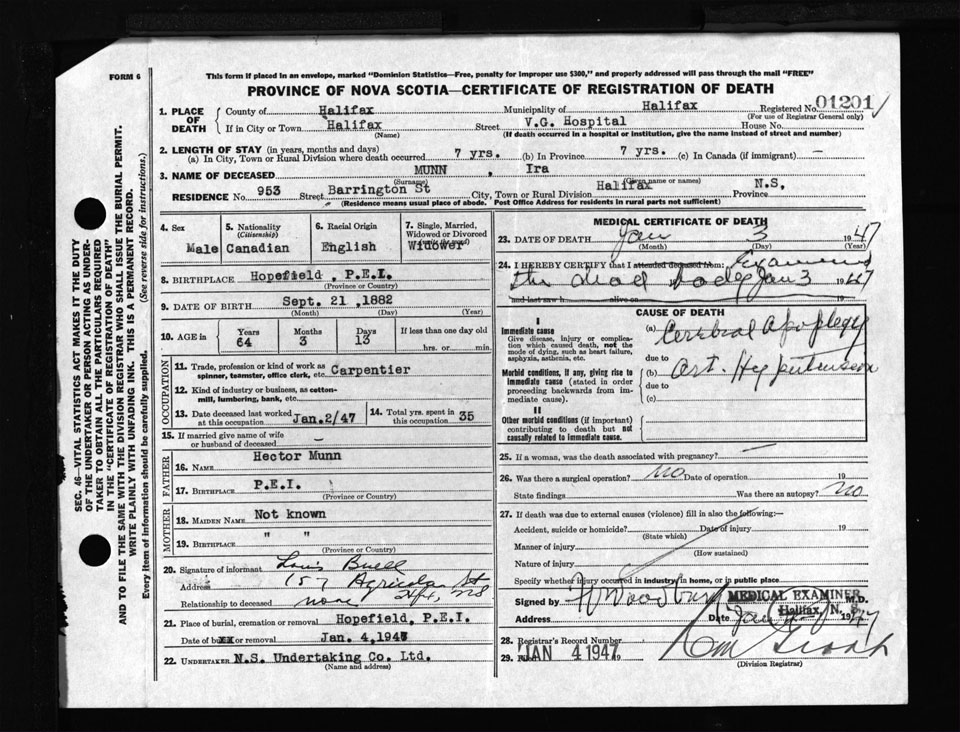 FORM 6
This form if placed in an envelope, marked "Dominion Statistics—Free, penalty for improper use $300," and properly addressed will pass through the mail "FREE"
PROVINCE OF NOVA SCOTIA—CERTIFICATE OF REGISTRATION OF DEATH
1. PLACE OF DEATH
County of Halifax Municipality of Halifax Registered No. 01201
(For use of Registrar General only)
If in City or Town Halifax Street V.G. Hospital House No.
(Name) (If death occurred in a hospital or institution, give the name instead of street and number)
2. LENGTH OF STAY (in years, months and days)
(a) In City, Town or Rural Division where death occurred 7 yrs. (b) In Province 7 yrs. (c) In Canada (if immigrant) —
3. NAME OF DECEASED MUNN , Ira
(Surname) (Given name or names)
RESIDENCE No. 953 Street Barrington St City, Town or Rural Division Halifax Province N.S.
(Residence means usual place of abode. Post Office Address for residents in rural parts not sufficient)
4. Sex Male
5. Nationality (Citizenship) Canadian
6. Racial Origin English
7. Single, Married, Widowed or Divorced (write the word) Widower
8. BIRTHPLACE Hopefield, P.E.I.
(Province or Country)
9. DATE OF BIRTH Sept. 21, 1882
(Month) (Day) (Year)
10. AGE in Years 64 Months 3 Days 13 If less than one day old hrs. or min.
OCCUPATION
11. Trade, profession or kind of work as spinner, teamster, office clerk, etc. Carpentier
12. Kind of industry or business, as cotton-mill, lumbering, bank, etc.
13. Date deceased last worked at this occupation Jan.2/47
14. Total yrs. spent in this occupation 35
15. If married give name of wife or husband of deceased —
FATHER
16. Name Hector Munn
17. Birthplace P.E.I.
(Province or Country)
MOTHER
18. Maiden Name Not known
19. Birthplace " "
(Province or Country)
20. Signature of informant Louis Buell
Address 157 Agricolas St
Hfx, NS
Relationship to deceased none
21. Place of burial, cremation or removal Hopefield, P.E.I.
Date of burial or removal Jan. 4,1947
22. UNDERTAKER N.S. Undertaking Co. Ltd.
(Name and address)
MEDICAL CERTIFICATE OF DEATH
23. DATE OF DEATH Jan 3 1947
(Month) (Day) (Year)
24. I HEREBY CERTIFY that I attended deceased from: Examined
the dead body Jan 3 1947
and last saw h alive on
CAUSE OF DEATH
I
Immediate cause
Give disease, injury or complication which caused death, not the mode of dying, such as heart failure, asphyxia, asthenia, etc.
(a) Cerebral Apoplegy
due to
Morbid conditions, if any, giving rise to immediate cause (stated in order proceeding backwards from immediate cause).
(b) Art. Hypertension
due to
(c)
II
Other morbid conditions (if important) contributing to death but not causally related to immediate cause.
25. If a woman, was the death associated with pregnancy?
26. Was there a surgical operation? no Date of operation 19
State findings Was there an autopsy? no
27. If death was due to external causes (violence) fill in also the following:—
Accident, suicide or homicide? Date of injury 19
(State which)
Manner of injury
(How sustained)
Nature of injury
Specify whether injury occurred in industry, in home, or in public place
Signed by Woodbury MEDICAL EXAMINER M.D.
Address Halifax, N. S. Date Jan 1947
28. Registrar's Record Number
29. JAN 4 1947 19
(Division Registrar)
SEC. 46—VITAL STATISTICS ACT MAKES IT THE DUTY
OF THE UNDERTAKER OR PERSON ACTING AS UNDER-
TAKER TO OBTAIN ALL THE PARTICULARS REQUIRED
IN THE "CERTIFICATE OF REGISTRATION OF DEATH"
AND TO FILE THE SAME WITH THE DIVISION REGISTRAR WHO SHALL ISSUE THE BURIAL PERMIT.
WRITE PLAINLY WITH UNFADING INK. THIS IS A PERMANENT RECORD.
Every item of information should be carefully supplied. (See reverse side for instructions.)